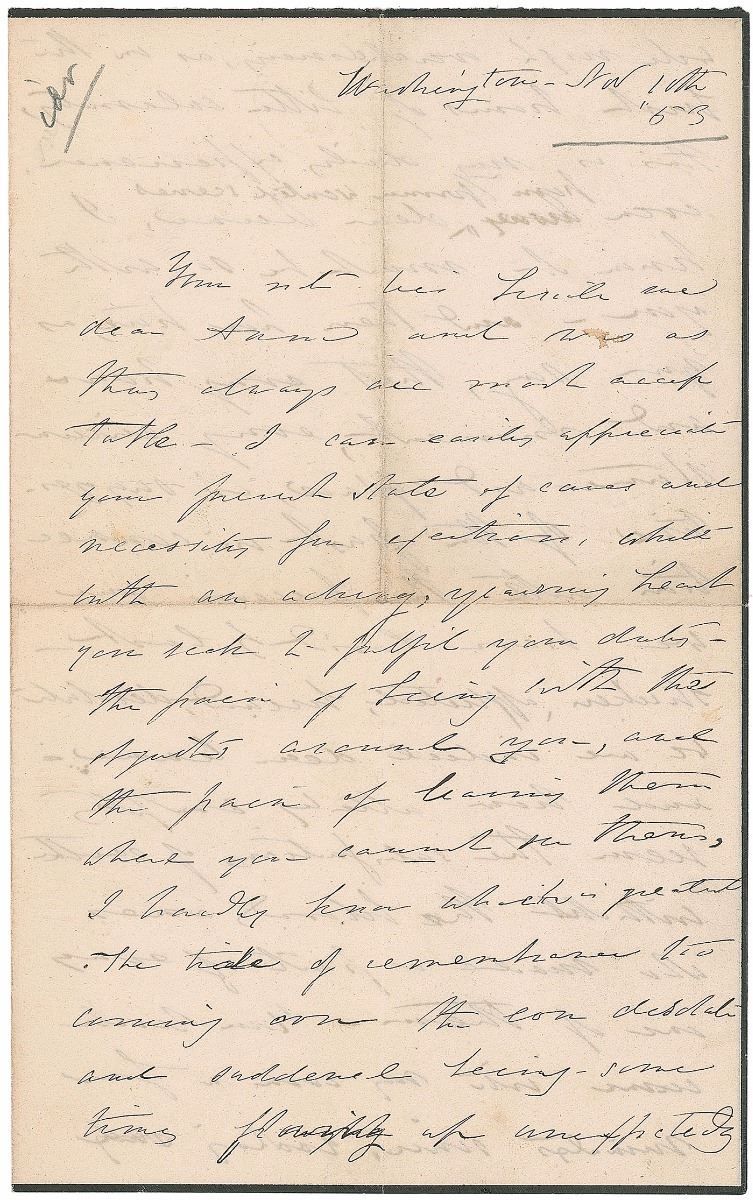 Washington - Nov 10th
'63
Your note lies beside me
dear Anna and was as
they always are most accep
table - I can easily appreciate
your present state of cares and
necessity for exertion, while
with an aching, yearning heart
you seek to fulfil your duties -
the pain of being with the
objects around you, and
the pain of leaving them
where you cannot see them,
I hardly know which is greatest
- The tide of remembrance too
coming over the con desolate
and saddened being - some
times flowing up unexpectedly